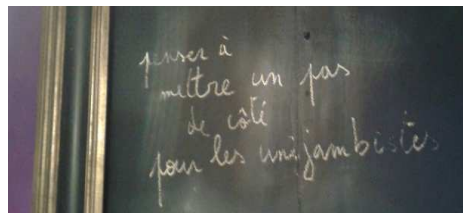 penser à
mettre un pas
de côté
pour les unijambistes